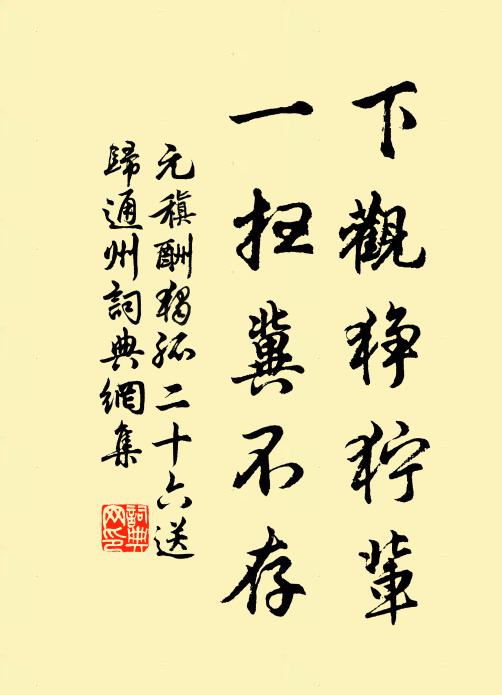 下觀狰狞輩
一扫冀不存
元稹酬獨孤二十六送
歸通州詞典網集
詞典網印